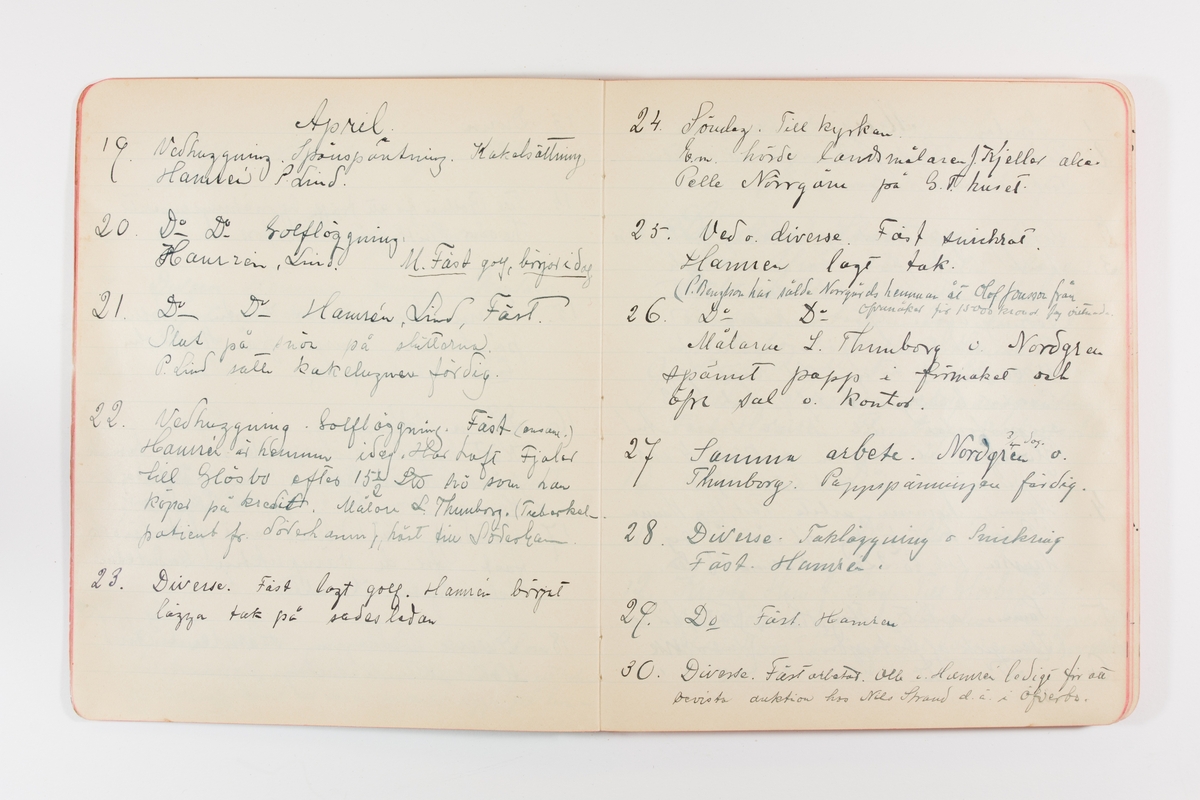 April.
19. Vedhuggning. Spånspäntning. Kakelsättning,
Hamrén P. Lind.
20. Do Do Golfläggning.
Hamrén, Lind. M. Fäst golf, börjar idag
21. Do Do Hamrén, Lind, Fäst.
Slut på snön på slätterna.
P. Lind satte kakelugnen färdig.
22. Vedhuggning. Golfläggning. Fäst (ensam.)
Hamrén är hemma idag. Har haft Fjalar
till Glösbo efter 15 hö som han
köper på kredit. Målare L. Thunborg. (Tuberkel-
patient fr. Söderhamn), häst till Söderhamn.
23. Diverse. Fäst lagt golf. Hamrén börjat
lägga tak på sädesladan
24. Söndag. Till kyrkan.
Em. hörde landsmålaren J. Kjeller alias
Pelle Norrgårn på G.T. huset.
25. Ved o. diverse. Fäst snickrat.
Hamrén lagt tak.
(P. Bengtson har sålda Norrgårds hemman åt Olof Jonsson från
för 15000 kronor
26. Do Do
Målarne L. Thunborg o. Nordgren
spännt papp i förmaket och
öfre sal o. kontor.
27 Samma arbete. Nordgren 3/4 dag. o.
Thunborg. Pappspänningen färdig.
28. Diverse. Takläggning o Snickring
Fäst. Hamrén.
29. Do Fäst. Hamrén
30. Diverse. Fäst arbetat. Olle o. Hamrén ledigt för att
bevista auktion hos Nils Strand d.ä. i Öfverbo.